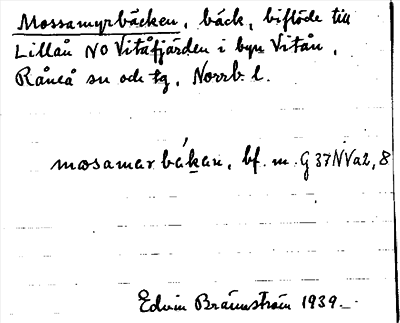 Mossamyrbäcken, bäck, biflöde till
Lillån NO Vitåfjärden i byn Vitån,
Råneå sn och tg, Norrb. l.
mosamarbäkan, bf. m. G 37 NVa2, 8
Edvin Brännström 1939.